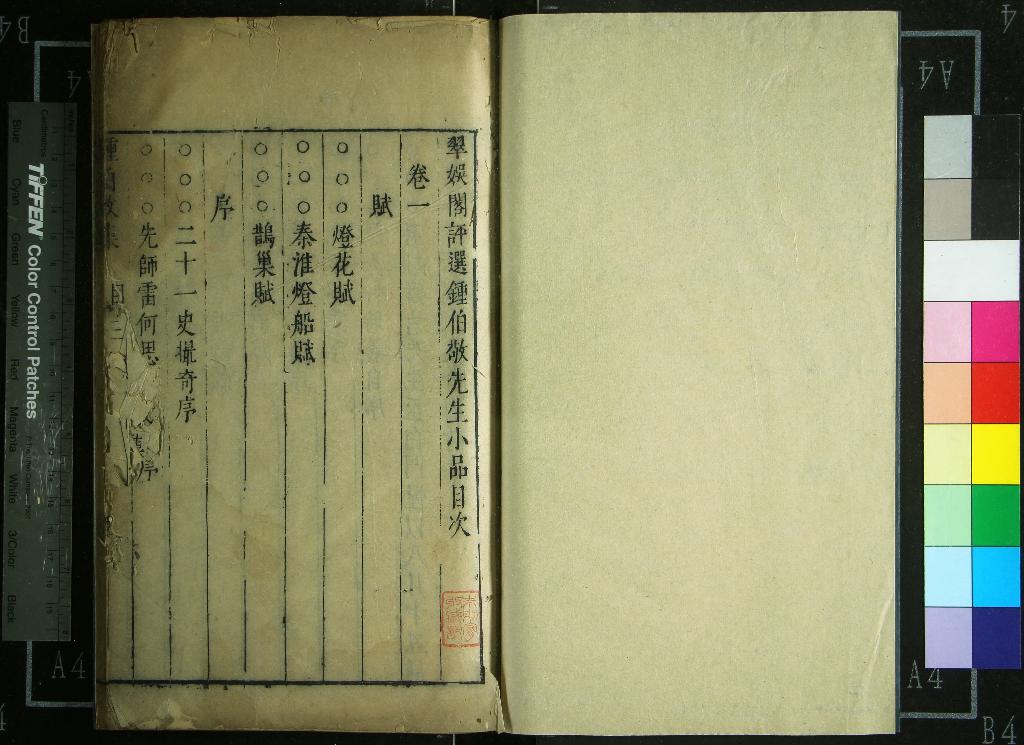 翠娛閣評選鍾伯敬先生小品目次
卷一
賦
○○○燈花賦
○○○秦淮燈船賦
○○○鵲巢賦
序
○○○二十一史撮奇序
○○○先師雷何思
序
TIFFEN Color Control Patches
Blue
Cyan
Green
Yellow
Red
Magenta
White
3/Color
Black
A4
A4
A4
A4
B4
B4